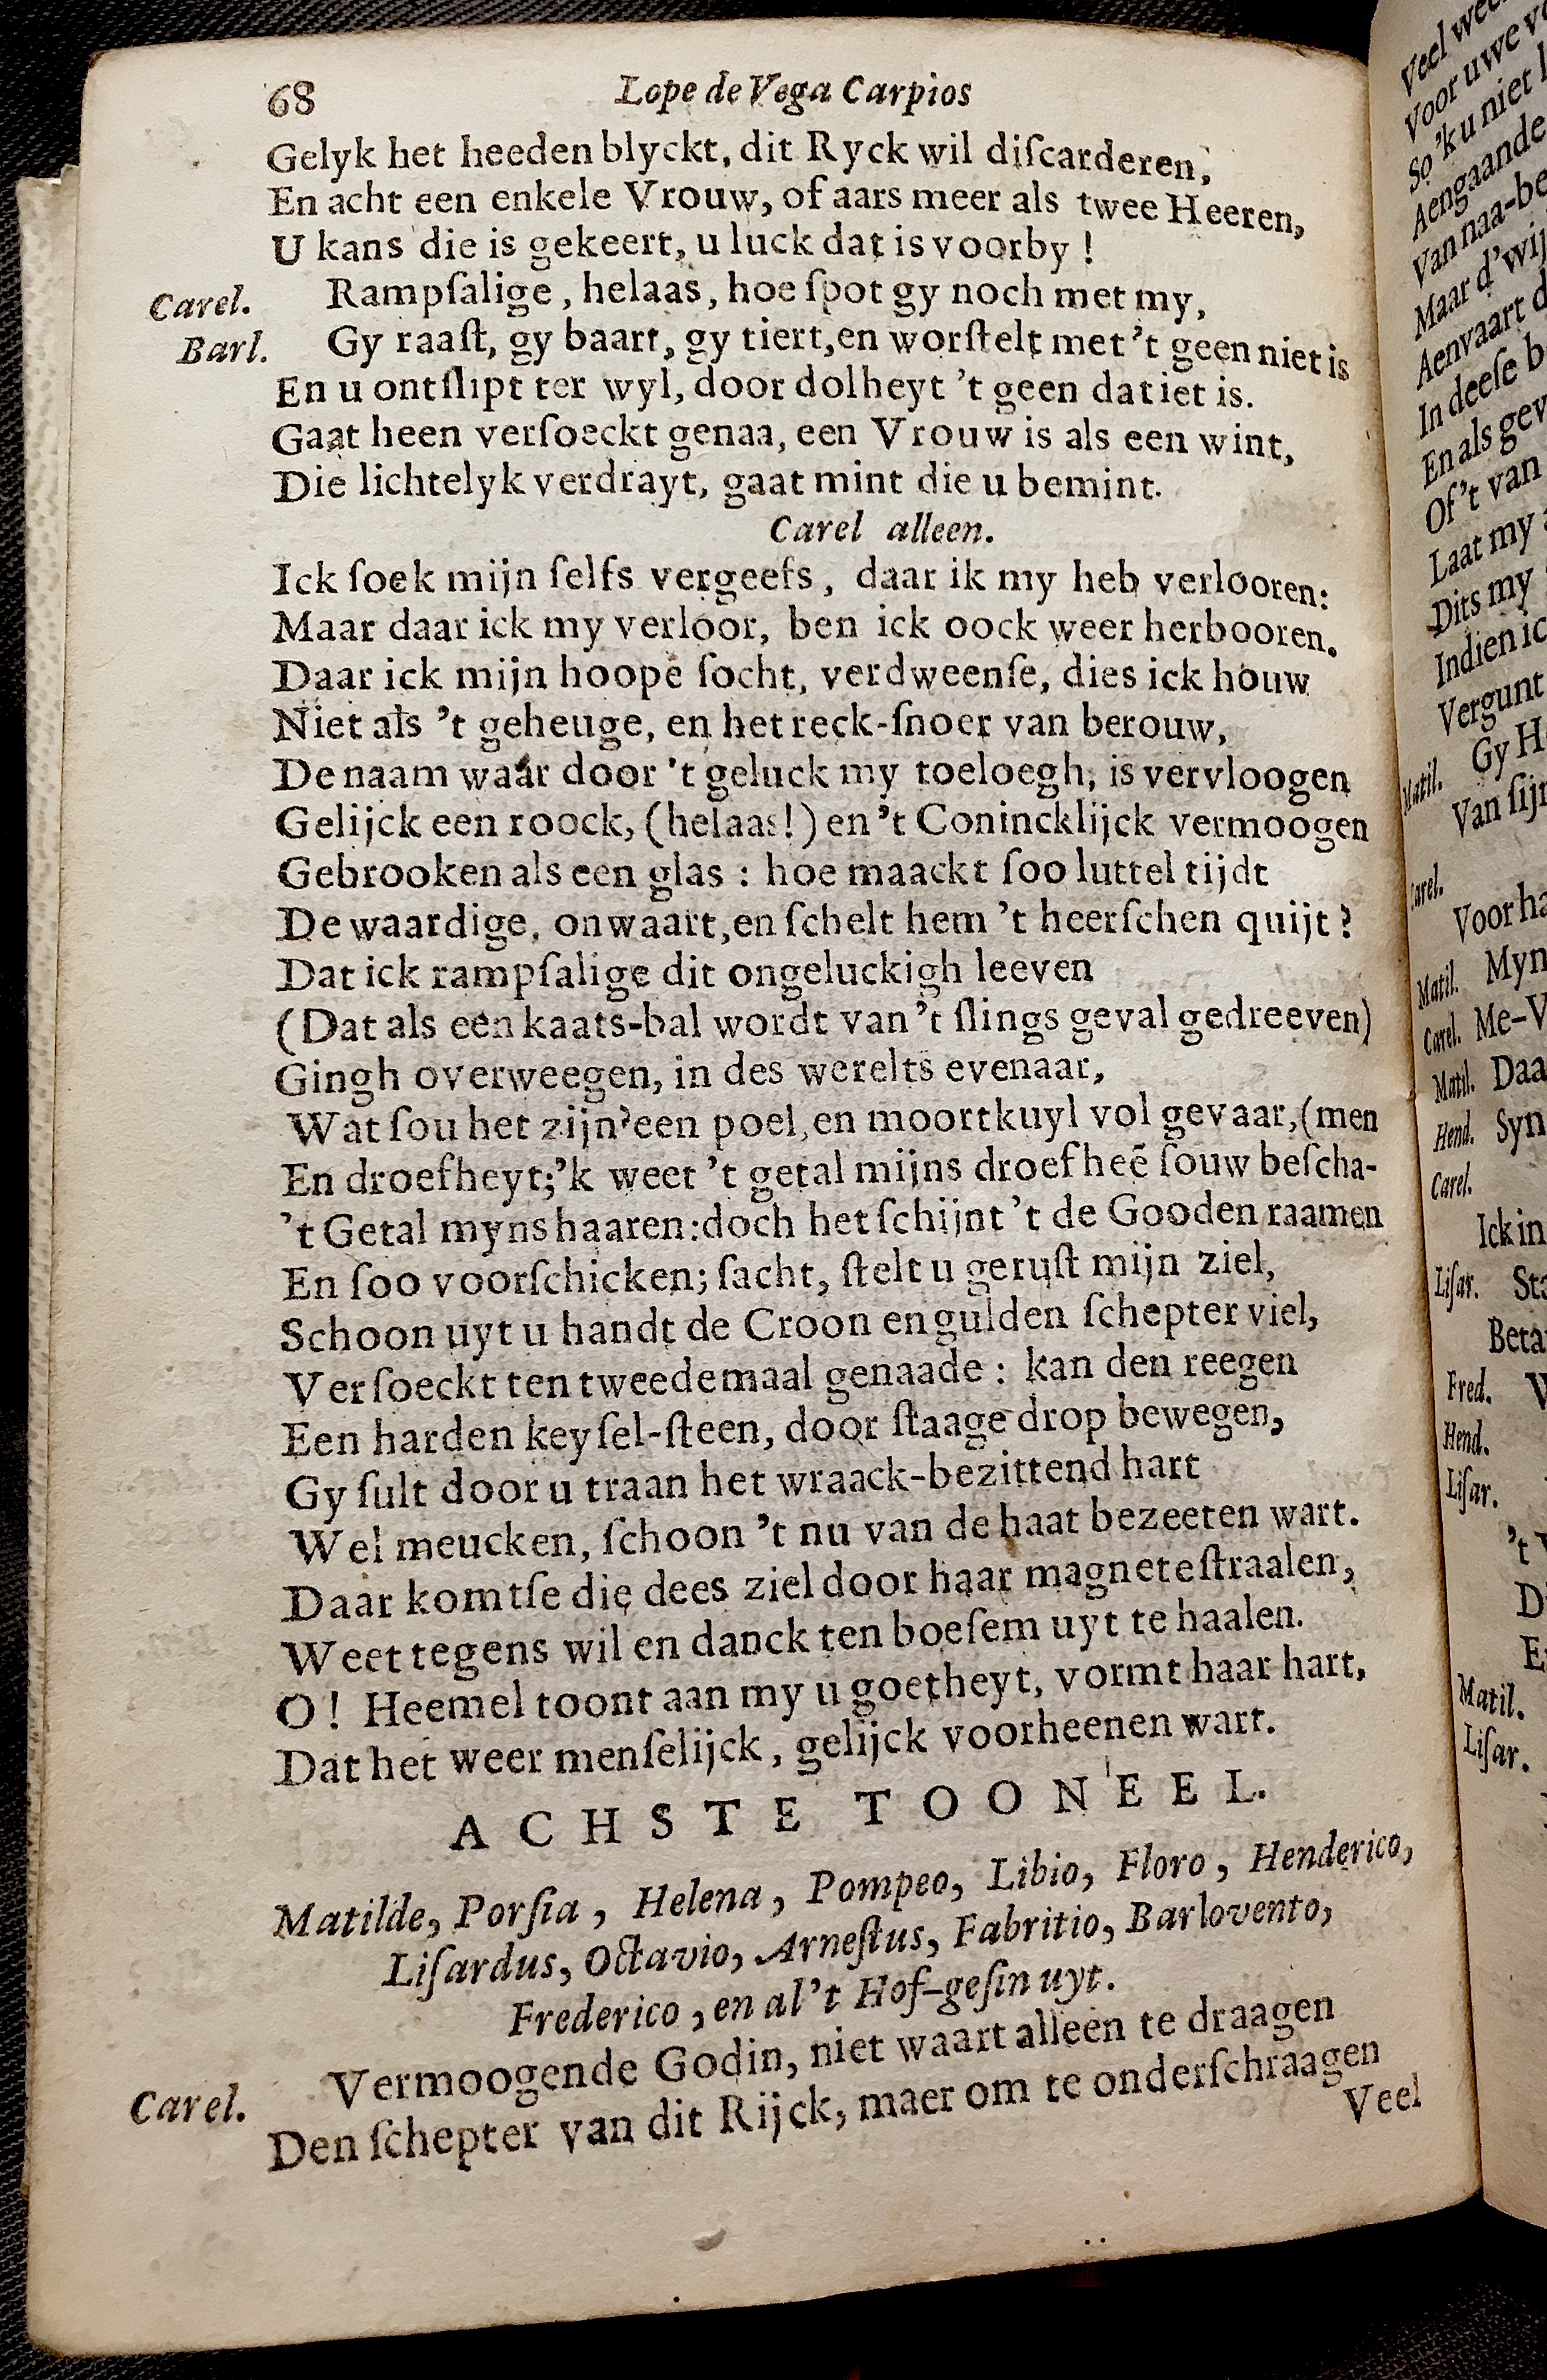 68 Lope de Vega Carpios
Gelyk het heeden blyckt, dit Ryck wil diſcarderen,
En acht een enkele Vrouw, of aars meer als twee Heeren,
U kans die is gekeert, u luck dat is voorby !
Carel. Rampſalige, helaas, hoe ſpot gy noch met my,
Barl. Gy raaſt, gy baart, gy tiert, en worſtelt met 't geen niet is
En u ontſlipt ter wyl, door dolheyt 't geen dat iet is.
Gaat heen verſoeckt genaa, een Vrouw is als een wint,
Die lichtelyk verdrayt, gaat mint die u bemint.
Carel alleen.
Ick ſoek mijn ſelfs vergeefs, daar ik my heb verlooren:
Maar daar ick my verloor, ben ick oock weer herbooren.
Daar ick mijn hoope ſocht, verdweenſe, dies ick houw
Niet als 't geheuge, en het reck-ſnoer van berouw,
De naam waar door 't geluck my toeloegh, is vervloogen
Gelijck een roock, (helaas!) en 't Conincklijck vermoogen
Gebrooken als een glas : hoe maackt ſoo luttel tijdt
De waardige, onwaart, en ſchelt hem 't heerſchen quijt?
Dat ick rampſalige dit ongeluckigh leeven
(Dat als een kaats-bal wordt van 't ſlings geval gedreeven)
Gingh overweegen, in des werelts evenaar,
Wat ſou het zijn? een poel, en moortkuyl vol gevaar, (men
En droefheyt; 'k weet 't getal mijns droefheē ſouw beſcha-
't Getal myns haaren: doch het ſchijnt 't de Gooden raamen
En ſoo voorſchicken; ſacht, ſtelt u geruſt mijn ziel,
Schoon uyt u handt de Croon en gulden ſchepter viel,
Verſoeckt ten tweedemaal genaade : kan den reegen
Een harden keyſel-ſteen, door ſtaage drop bewegen,
Gy ſult door u traan het wraack-bezittend hart
Wel meucken, ſchoon 't nu van de haat bezeeten wart.
Daar komtſe die dees ziel door haar magneteſtraalen,
Weet tegens wil en danck ten boeſem uyt te haalen.
O! Heemel toont aan my u goetheyt, vormt haar hart,
Dat het weer menſelijck, gelijck voorheenen wart.
ACHSTE TOONEEL.
Matilde, Porſia, Helena, Pompeo, Libio, Floro, Henderico,
Liſardus, Octavio, Arneſtus, Fabritio, Barlovento,
Frederico, en al't Hof-geſin uyt.
Carel. Vermoogende Godin, niet waart alleen te draagen
Den ſchepter van dit Rijck, maer om te onderſchraagen
Veel
Voor uwe
So 'k u niet
Aengaande
Van naa-be
Maar d'wij
Aenvaart d
In deeſe b
En als gev
Of 't van
Laat my
Dits my
Indien ic
Vergunt
Matil. Gy H
Van ſijn
Carel.
Voor ha
Matil. Myn
Carel. Me-V
Matil. Daa
Hend. Syn
Carel.
Ick in
Liſar. Sta
Beta
Fred.
Hend.
Liſar.
't
Matil.
Liſar.